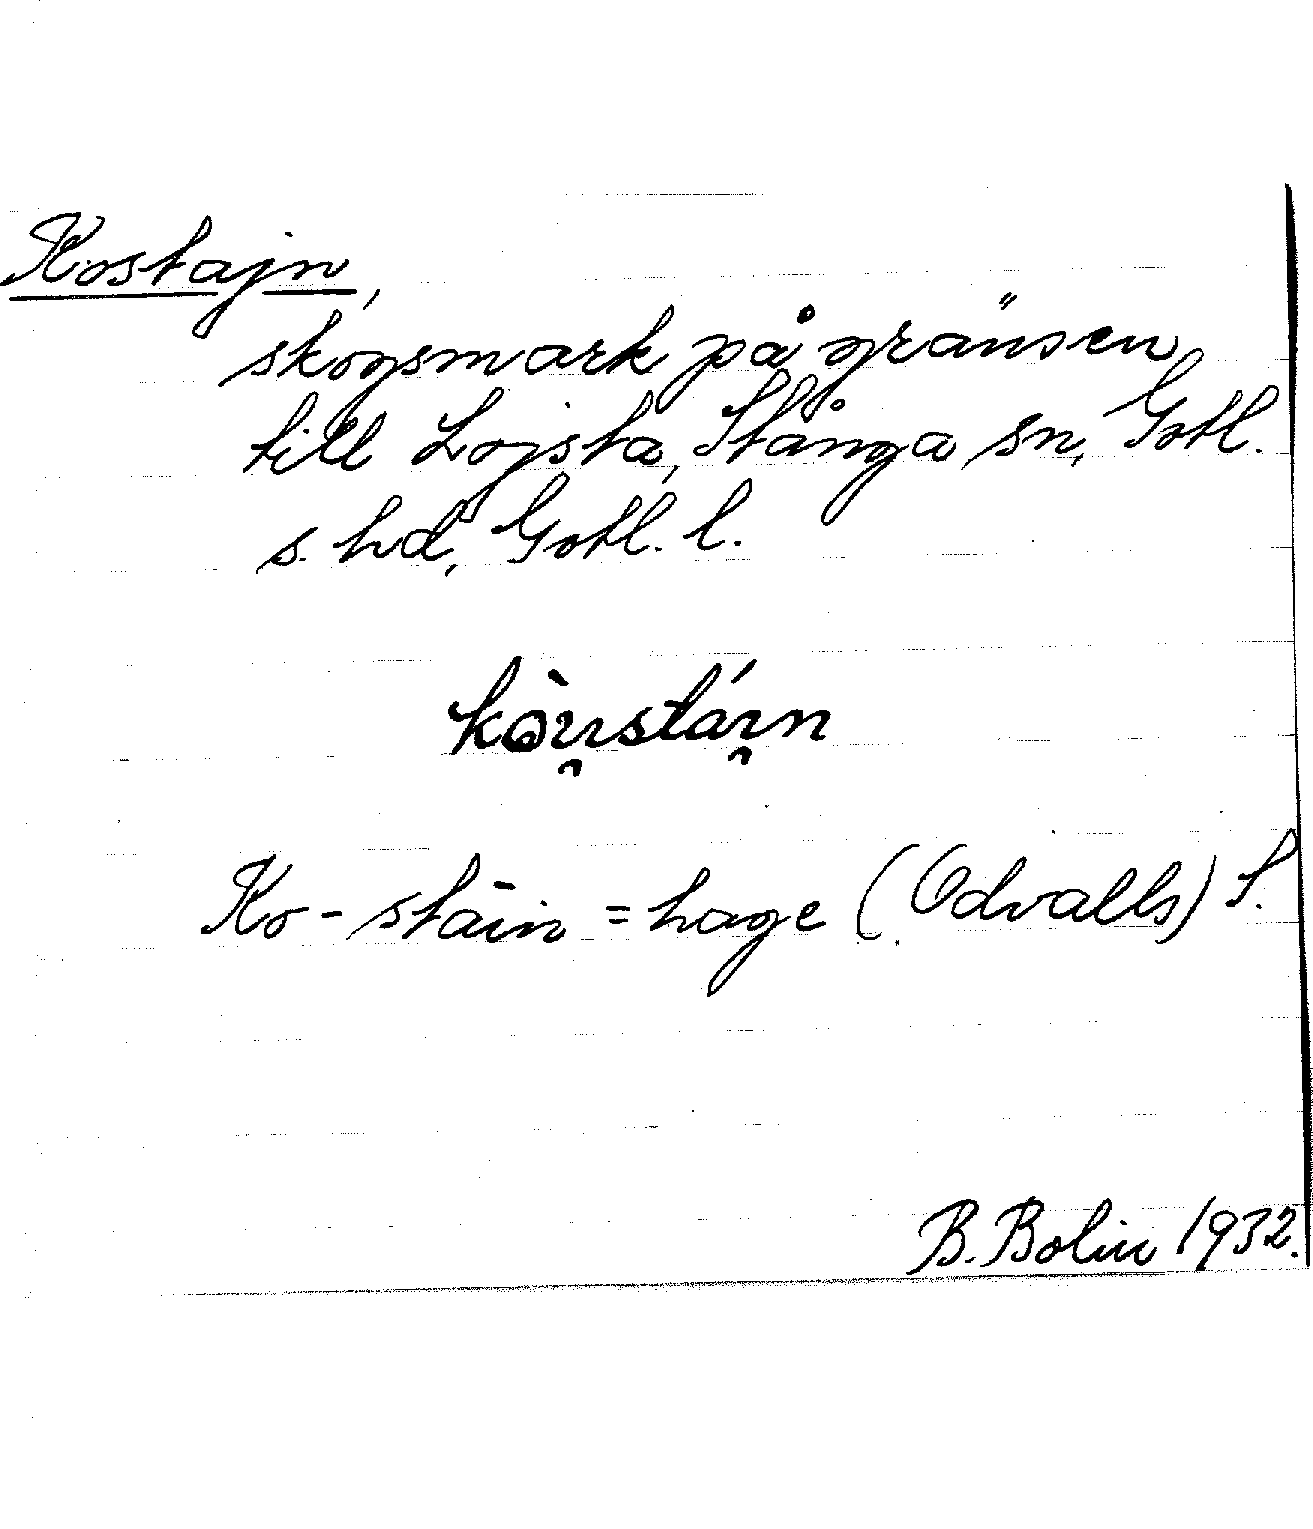 Kostajn,
skogsmark på gränsen
till Lojsta, Stånga sn, Gotl.
s. hd, Gotl. l.
kòu̯stái̯n
Ko-stāin = hage (Odvalls) S.
B. Bolin 1932.